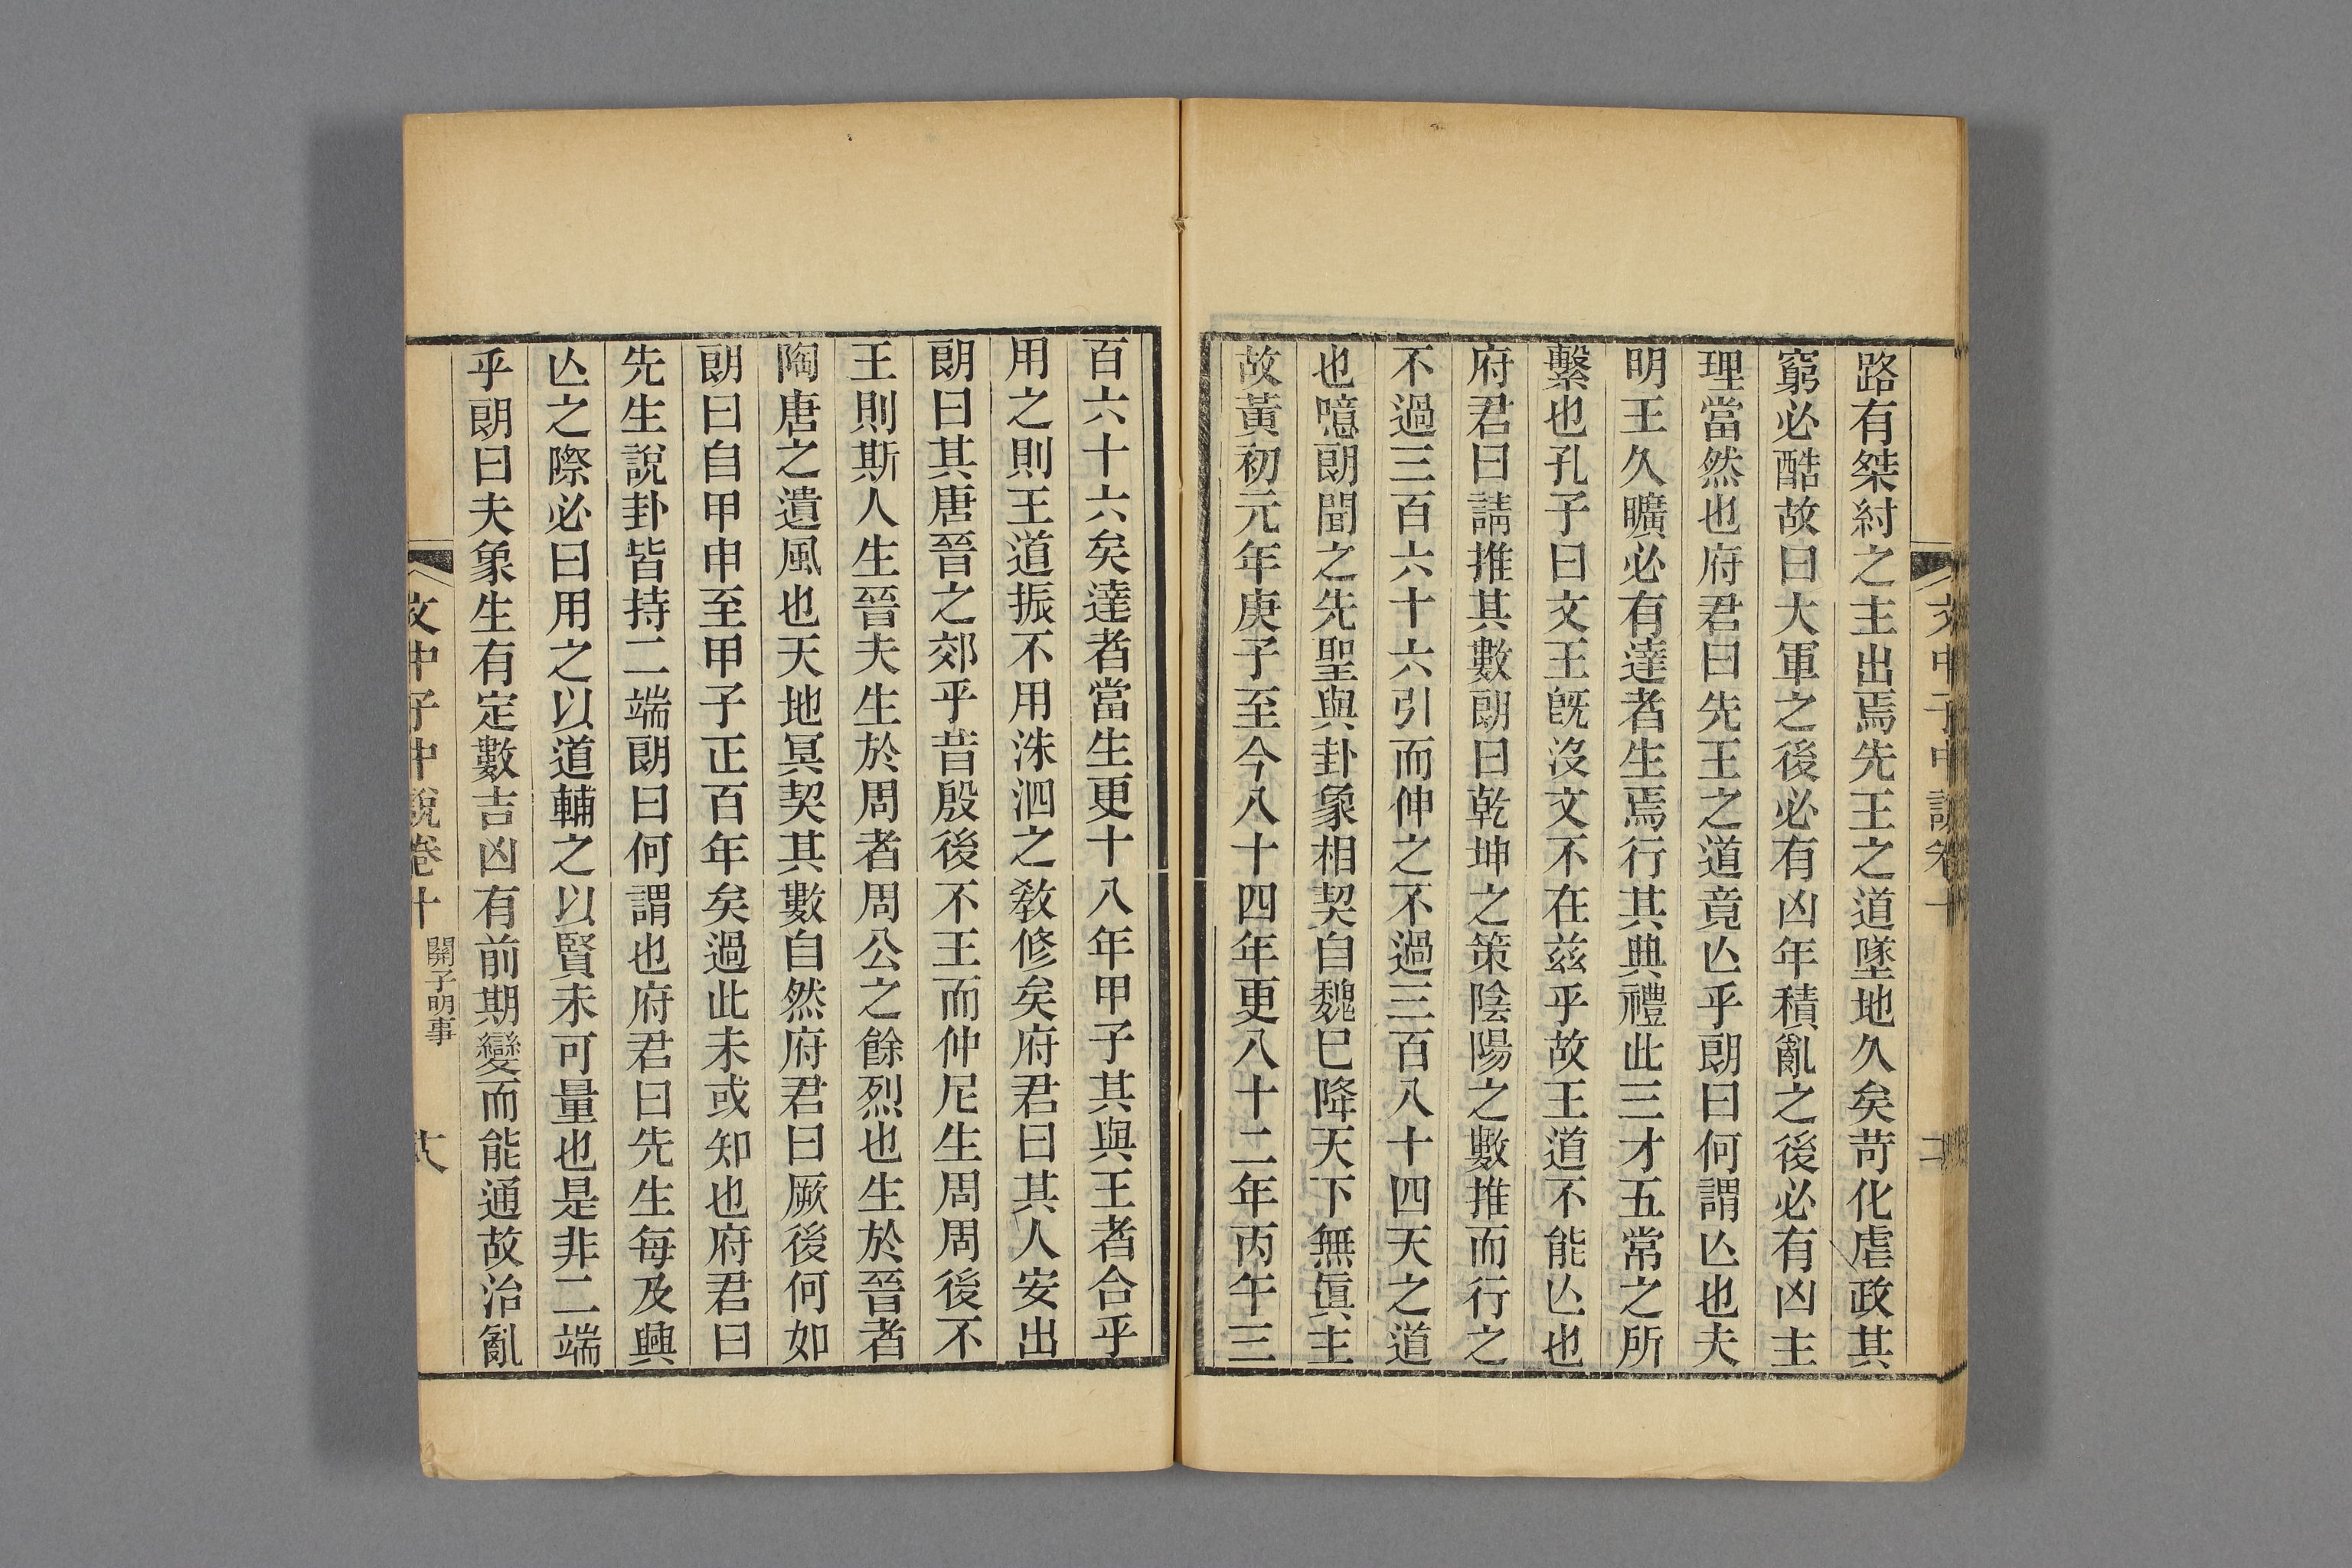 路有桀紂之主出焉先王之道墜地久矣苛化虐政其
窮必酷故曰大軍之後必有凶年積亂之後必有凶主
理當然也府君曰先王之道竟亾乎朗曰何謂亾也夫
明王久曠必有達者生焉行其典禮此三才五常之所
繫也孔子曰文王旣沒文不在兹乎故王道不能亾也
府君曰請推其數朗曰乾坤之策陰陽之數推而行之
不過三百六十六引而伸之不過三百八十四天之道
也噫朗聞之先聖與卦象相契自魏已降天下無眞主
故黃初元年庚子至今八十四年更八十二年丙午三
百六十六矣達者當生更十八年甲子其與王者合乎
用之則王道振不用洙泗之敎修矣府君曰其人安出
朗曰其唐晉之郊乎昔殷後不王而仲尼生周周後不
王則斯人生晉夫生於周者周公之餘烈也生於晉者
陶唐之遺風也天地冥契其數自然府君曰厥後何如
朗曰自甲申至甲子正百年矣過此未或知也府君曰
先生說卦皆持二端朗曰何謂也府君曰先生每及興
亾之際必曰用之以道輔之以賢未可量也是非二端
乎朗曰夫象生有定數吉凶有前期變而能通故治亂
文中子中說卷十 關子明事